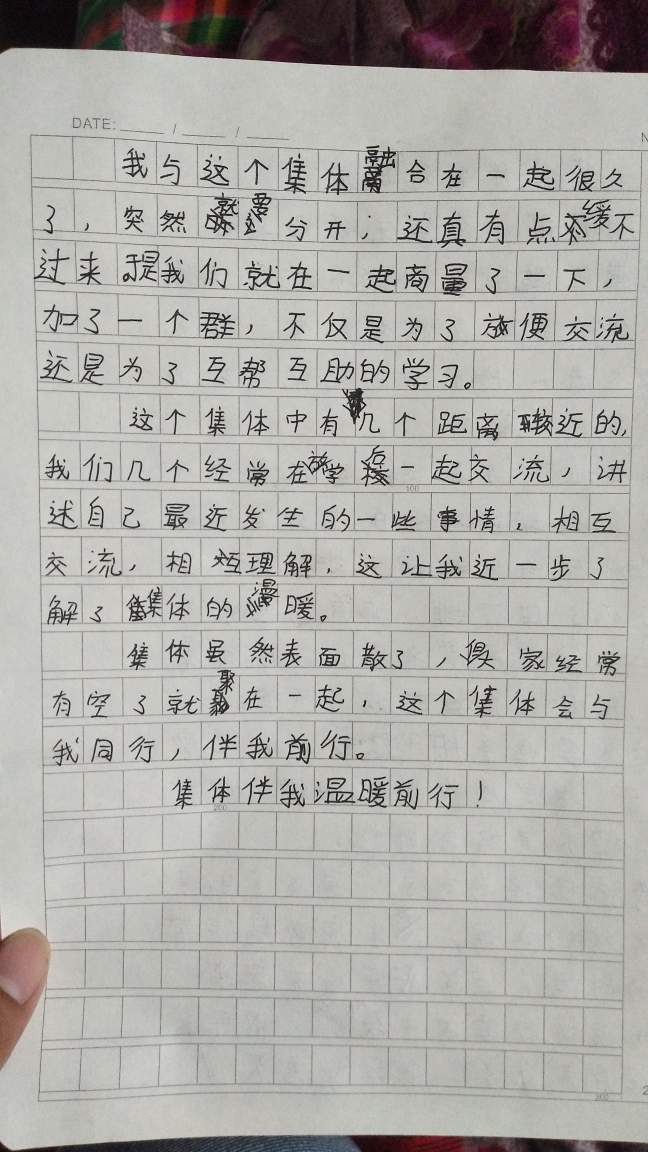 DATE: ____ / ____ / ____
我与这个集体融合在一起很久
了，突然就要分开；还真有点缓不
过来。于是我们就在一起商量了一下，
加了一个群，不仅是为了方便交流
还是为了互帮互助的学习。
这个集体中有几个距离较近的，
我们几个经常在放学后一起交流，讲
述自己最近发生的一些事情，相互
交流，相互理解，这让我近一步了
解了集体的温暖。
集体虽然表面散了，但大家经常
有空了就聚在一起，这个集体会与
我同行，伴我前行。
集体伴我温暖前行！